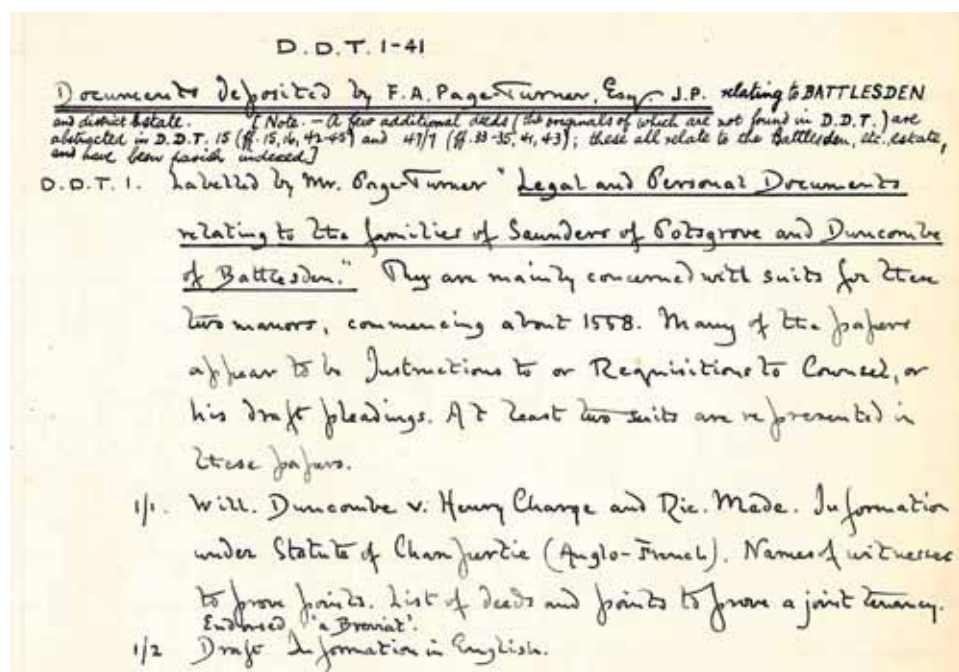 D.D.T. 1-41
Documents deposited by F.A. Page-Turner, Esq. J.P. relating to BATTLESDEN
and district Estate. [Note. – A few additional deeds (the originals of which are not found in D.D.T.) are
abstracted in D.D.T. 15 (ff. 15, 16, 42-45) and 47/7 (ff. 33-35, 41, 43); these all relate to the Battlesden, etc. estate,
and have been parish indexed]
D.D.T. 1. Labelled by Mr. Page-Turner "Legal and Personal Documents
relating to the families of Saunders of Potsgrove and Duncombe
of Battlesden." They are mainly concerned with suits for these
two manors, commencing about 1558. Many of the papers
appear to be Instructions to or Requisitions to Counsel, or
his draft pleadings. At least two suits are represented in
these papers.
1/1. Will. Duncombe v. Henry Charge and Ric. Made. Information
under Statute of Champertie (Anglo-French). Names of witnesses
to prove points. List of deeds and points to prove a joint tenancy.
Endorsed 'a Breviat'.
1/2 Draft Information in English.